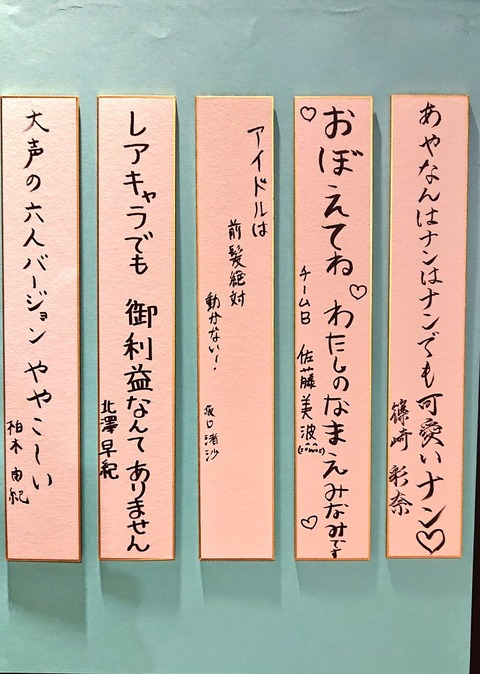 あやなんはナンはナンでも可愛いナン♡
篠崎 彩奈
♡おぼえてね♡わたしのなまえみなみです♡
チームB 佐藤美波(¨̮)
アイドルは
前髪絶対
動かない!
坂口渚沙
レアキャラでも 御利益なんてありません
北澤早紀
大声の六人バージョン ややこしい
柏木由紀